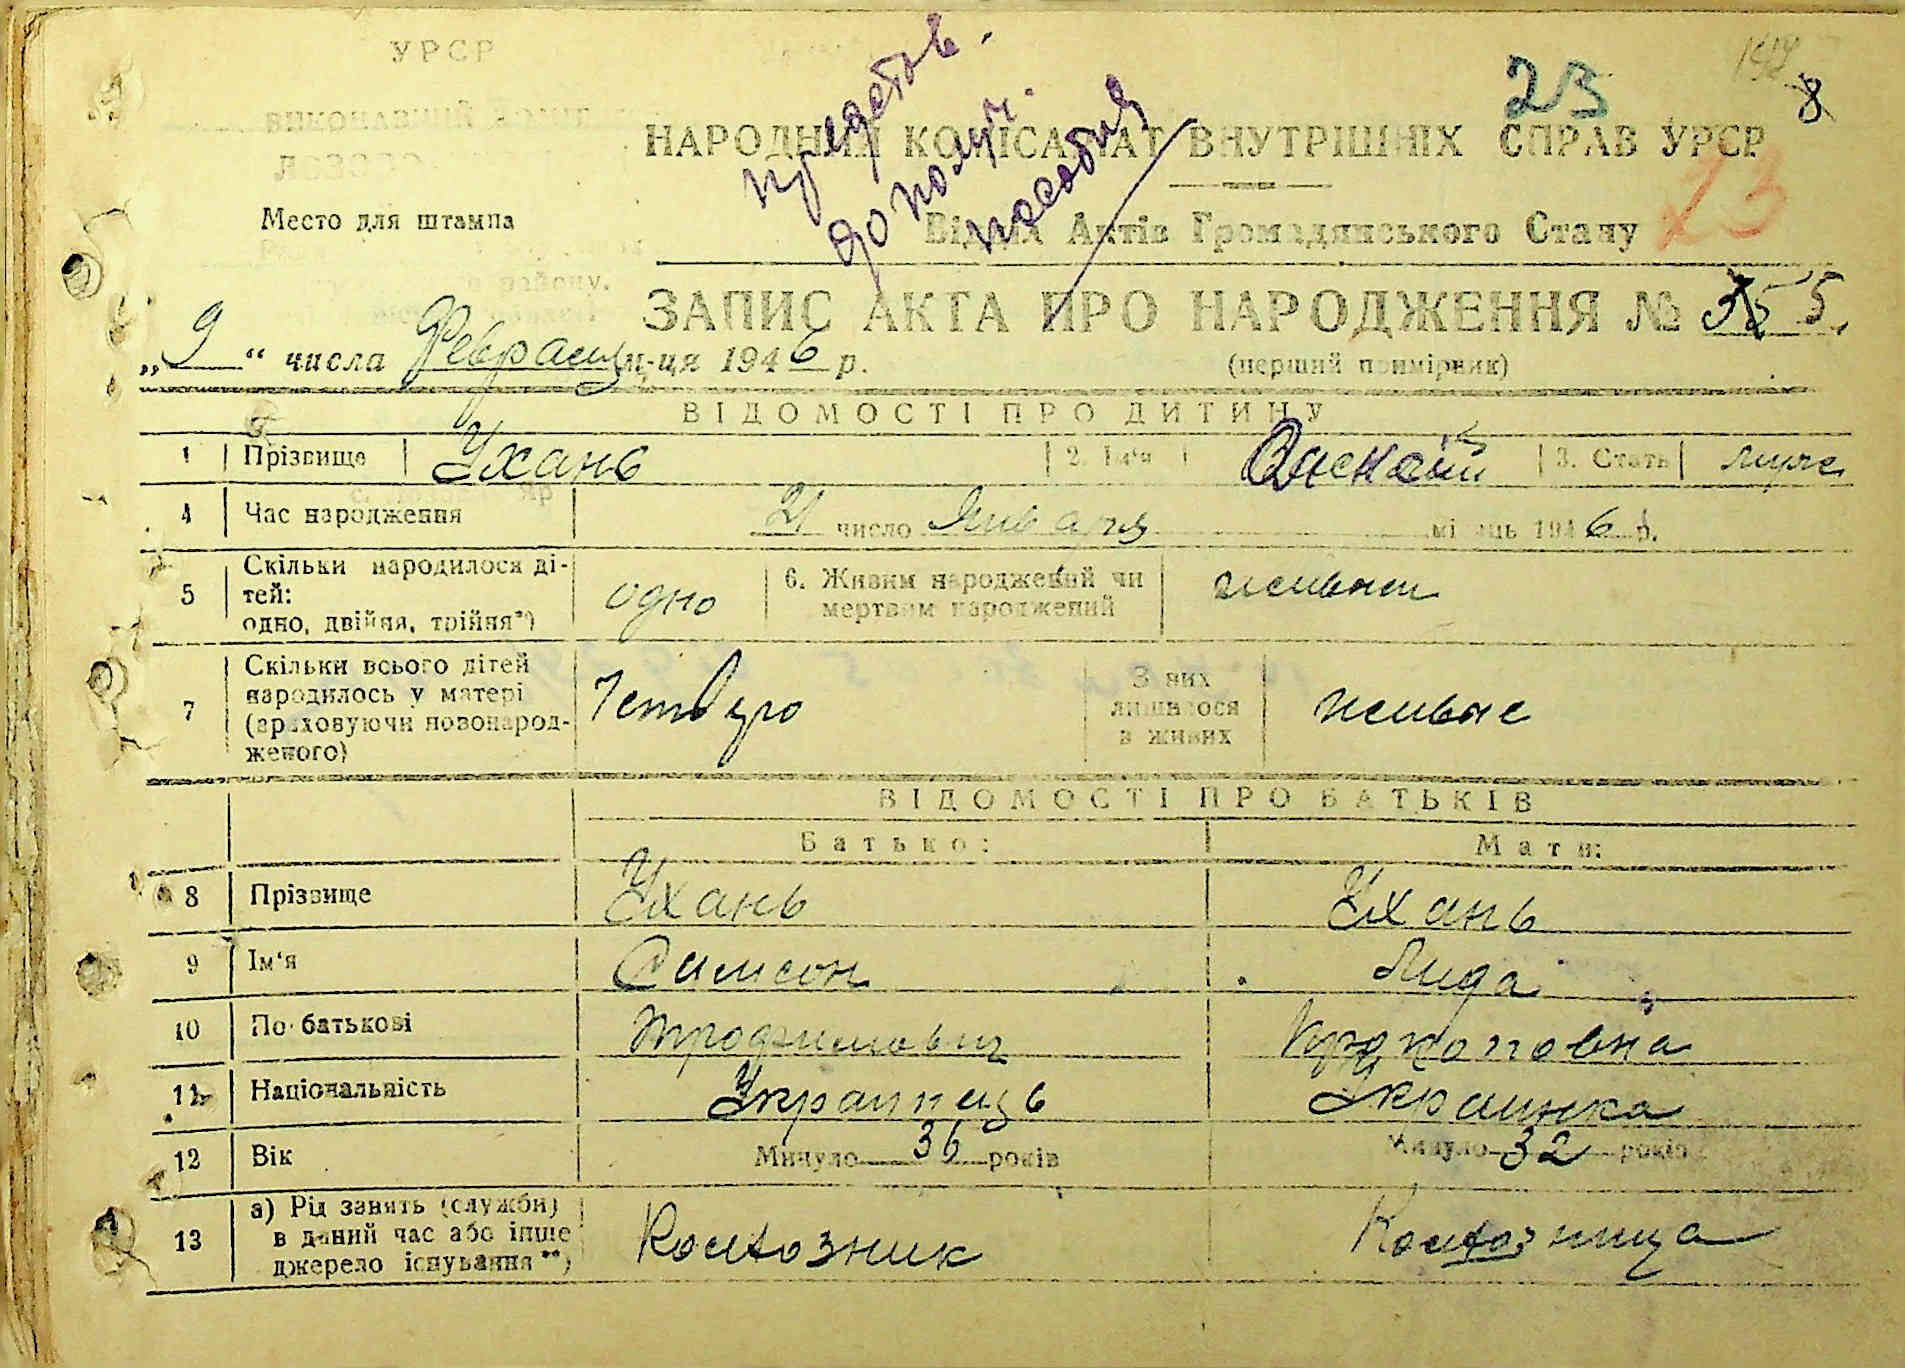 УРСР
ВИКОНАВЧИЙ КОМІТ
Место для штампа
району.
представ.
до получ.
пособия
23
8
НАРОДНИЙ КОМІСАРІАТ ВНУТРІШНІХ СПРАВ УРСР
23
Відділ Актів Громадянського Стану
ЗАПИС АКТА ПРО НАРОДЖЕННЯ №
5.
„9“ числа Февраля м-ця 1946 р.
(перший примірник)
ВІДОМОСТІ ПРО ДИТИНУ
1 Прізвище Ухань 2. Ім'я 3. Стать муже
4 Час народження 21 число Января місяць 1946 р.
5 Скільки народилося ді-
тей:
одно, двійня, трійня*)
одно
6. Живим народжений чи
мертвим народжений
живым
7 Скільки всього дітей
народилось у матері
(враховуючи новонарод-
женого)
Четверо
З них
лишилося
в живих
живые
ВІДОМОСТІ ПРО БАТЬКІВ
Батько: Мати:
8 Прізвище Ухань Ухань
9 Ім'я Самсон Лида
10 По батькові Трофимович Прокоповна
11 Національність Українець Украинка
12 Вік Минуло 36 років Минуло 32 років
13 а) Рід занять (служби)
в даний час або інше
джерело існування**)
Колхозник Колхозница